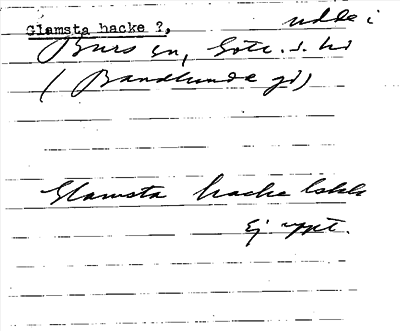 Glamsta hacke ?, udde i
Burs sn, Gotl. s. hd
( Bandlunde gd)
Glamsta hacke
Ej uppt.